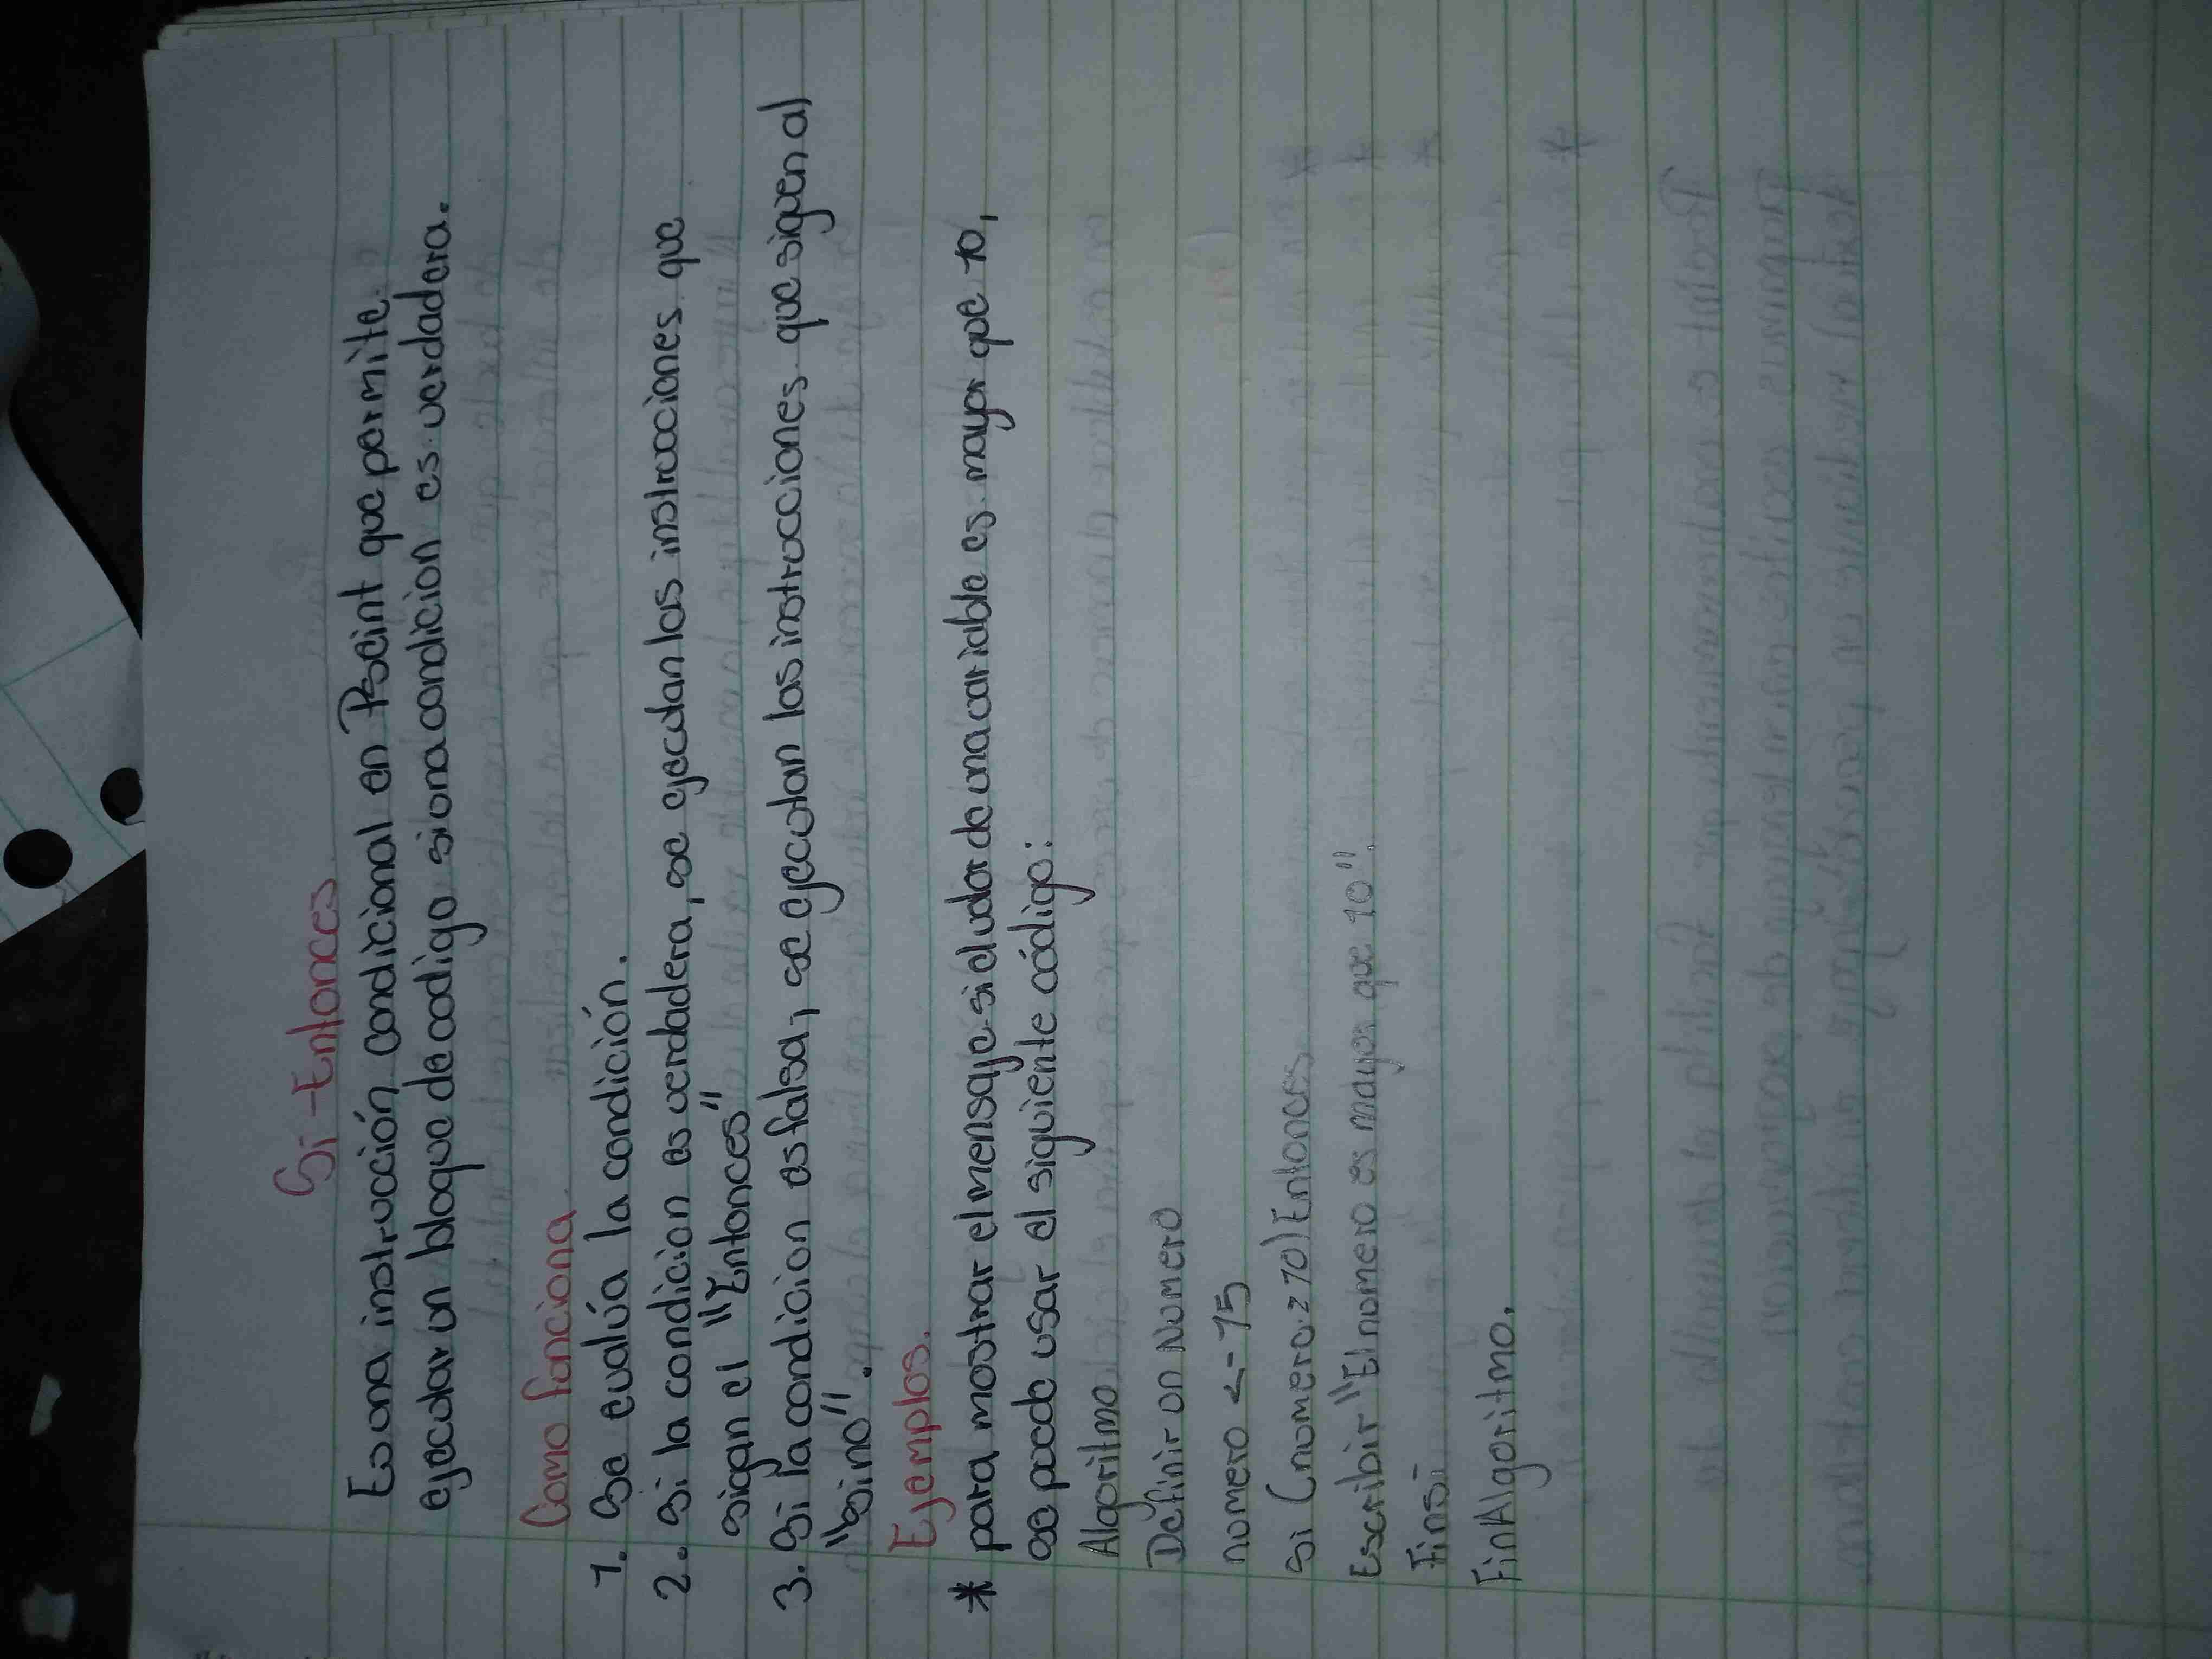 Si-Entonces
Es una instrucción condicional en Pseint que permite
ejecutar un bloque de codigo si una condicion es verdadera.
Como funciona
1. Se evalúa la condición.
2. Si la condicion es verdadera, se ejecutan las instrucciones que
sigan el "Entonces"
3. Si la condicion es falsa, se ejecutan las instrucciones que siguen al
"sino".
Ejemplos.
* para mostrar el mensaje si el valor de una variable es mayor que 10,
se puede usar el siguiente código:
Algoritmo
Definir un Numero
numero <- 15
Si (numero 10) Entonces
Escribir "El numero es mayor que 10".
Finsi
FinAlgoritmo.